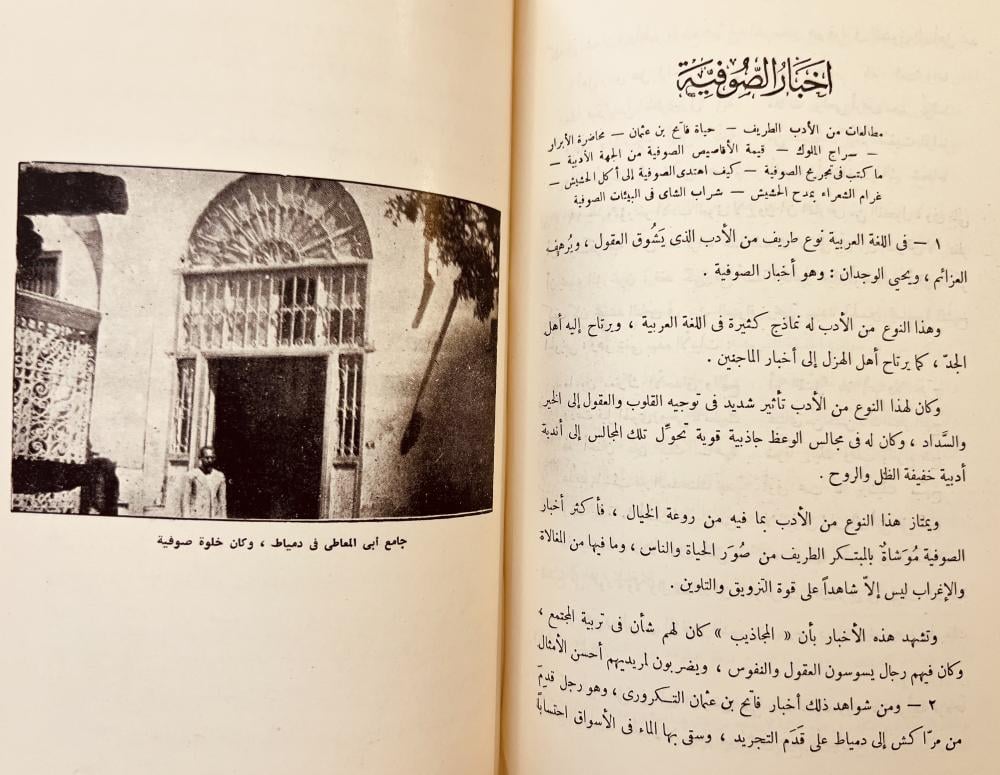 اخبار الصوفية
مطالعات من الأدب الطريف – حياة فاتح بن عثمان – محاضرة الأبرار
– سراج الملوك – قيمة الأقاصيص الصوفية من الجهة الأدبية –
ما كتب فى تجريح الصوفية – كيف اهتدى الصوفية إلى أكل الحشيش –
غرام الشعراء بمدح الحشيش – شراب الشاى فى البيئات الصوفية
١ – فى اللغة العربية نوع طريف من الأدب الذى يَشُوق العقول ، ويُرهف
العزائم ، ويحيي الوجدان : وهو أخبار الصوفية .
وهذا النوع من الأدب له نماذج كثيرة فى اللغة العربية ، ويرتاح إليه أهل
الجدّ ، كما يرتاح أهل الهزل إلى أخبار الماجنين .
وكان لهذا النوع من الأدب تأثير شديد فى توجيه القلوب والعقول إلى الخير
والسَّداد ، وكان له فى مجالس الوعظ جاذبية قوية تحوِّل تلك المجالس إلى أندية
أدبية خفيفة الظل والروح .
ويمتاز هذا النوع من الأدب بما فيه من روعة الخيال ، فأكثر أخبار
الصوفية مُوَشاةٌ بالمبتكر الطريف من صُوَر الحياة والناس ، وما فيها من المغالاة
والإغراب ليس إلاّ شاهداً على قوة التزويق والتلوين .
وتشهد هذه الأخبار بأن « المجاذيب » كان لهم شأن فى تربية المجتمع ،
وكان فيهم رجال يسوسون العقول والنفوس ، ويضربون لمريديهم أحسن الأمثال
٢ – ومن شواهد ذلك أخبار فاتح بن عثمان التكرورى ، وهو رجل قدِمَ
من مرّاكش إلى دمياط على قَدَم التجريد ، وسقى بها الماء فى الأسواق احتسابًا
جامع أبى المعاطى فى دمياط ، وكان خلوة صوفية